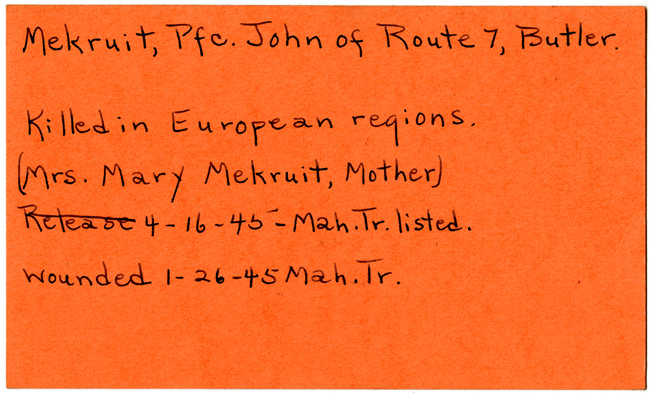 Mekruit, Pfc. John of Route 7, Butler.
Killed in European regions.
(Mrs. Mary Mekruit, Mother)
Release 4-16-45-Mah.Tr. listed.
wounded 1-26-45 Mah.Tr.